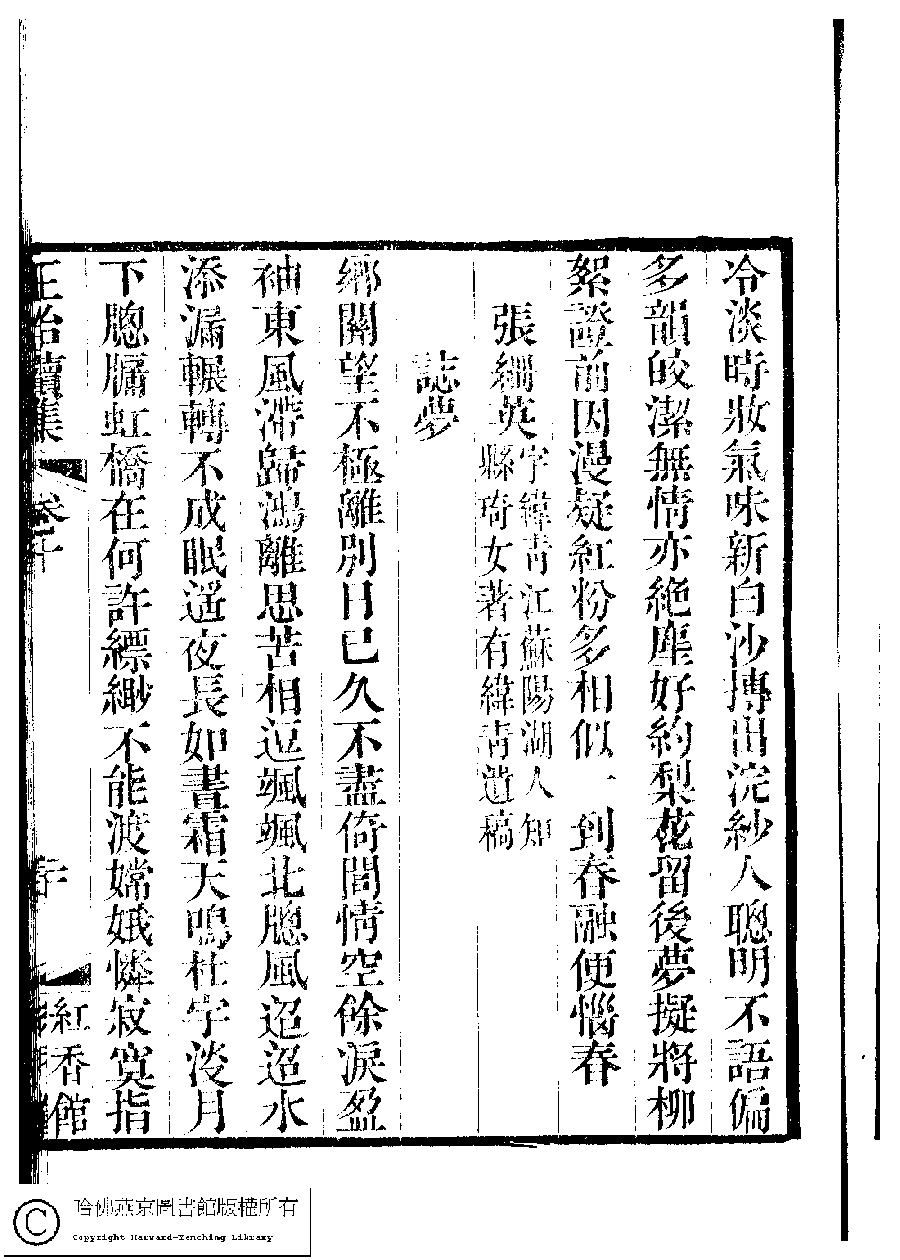 冷淡時妝氣味新白沙摶出浣紗人聰明不語偏
多韻皎潔無情亦絶塵好約梨花留後夢擬將柳
絮證前因漫疑紅粉多相似一到春融便惱春
張𦈏英字緯青江蘇陽湖人知
縣琦女著有緯青遺稿
誌夢
鄉關望不極離別日已久不盡倚閭情空餘淚盈
袖東風滯歸鴻離思苦相逗颯颯北牕風迢迢水
添漏輾轉不成眠遥夜長如晝霜天鳴杜宇淡月
下牕牖虹橋在何許縹緲不能渡嫦娥憐寂寞指
正始續集 卷十
紅香館
哈佛燕京圖書館版權所有
Copyright Harvard-Yenching Library